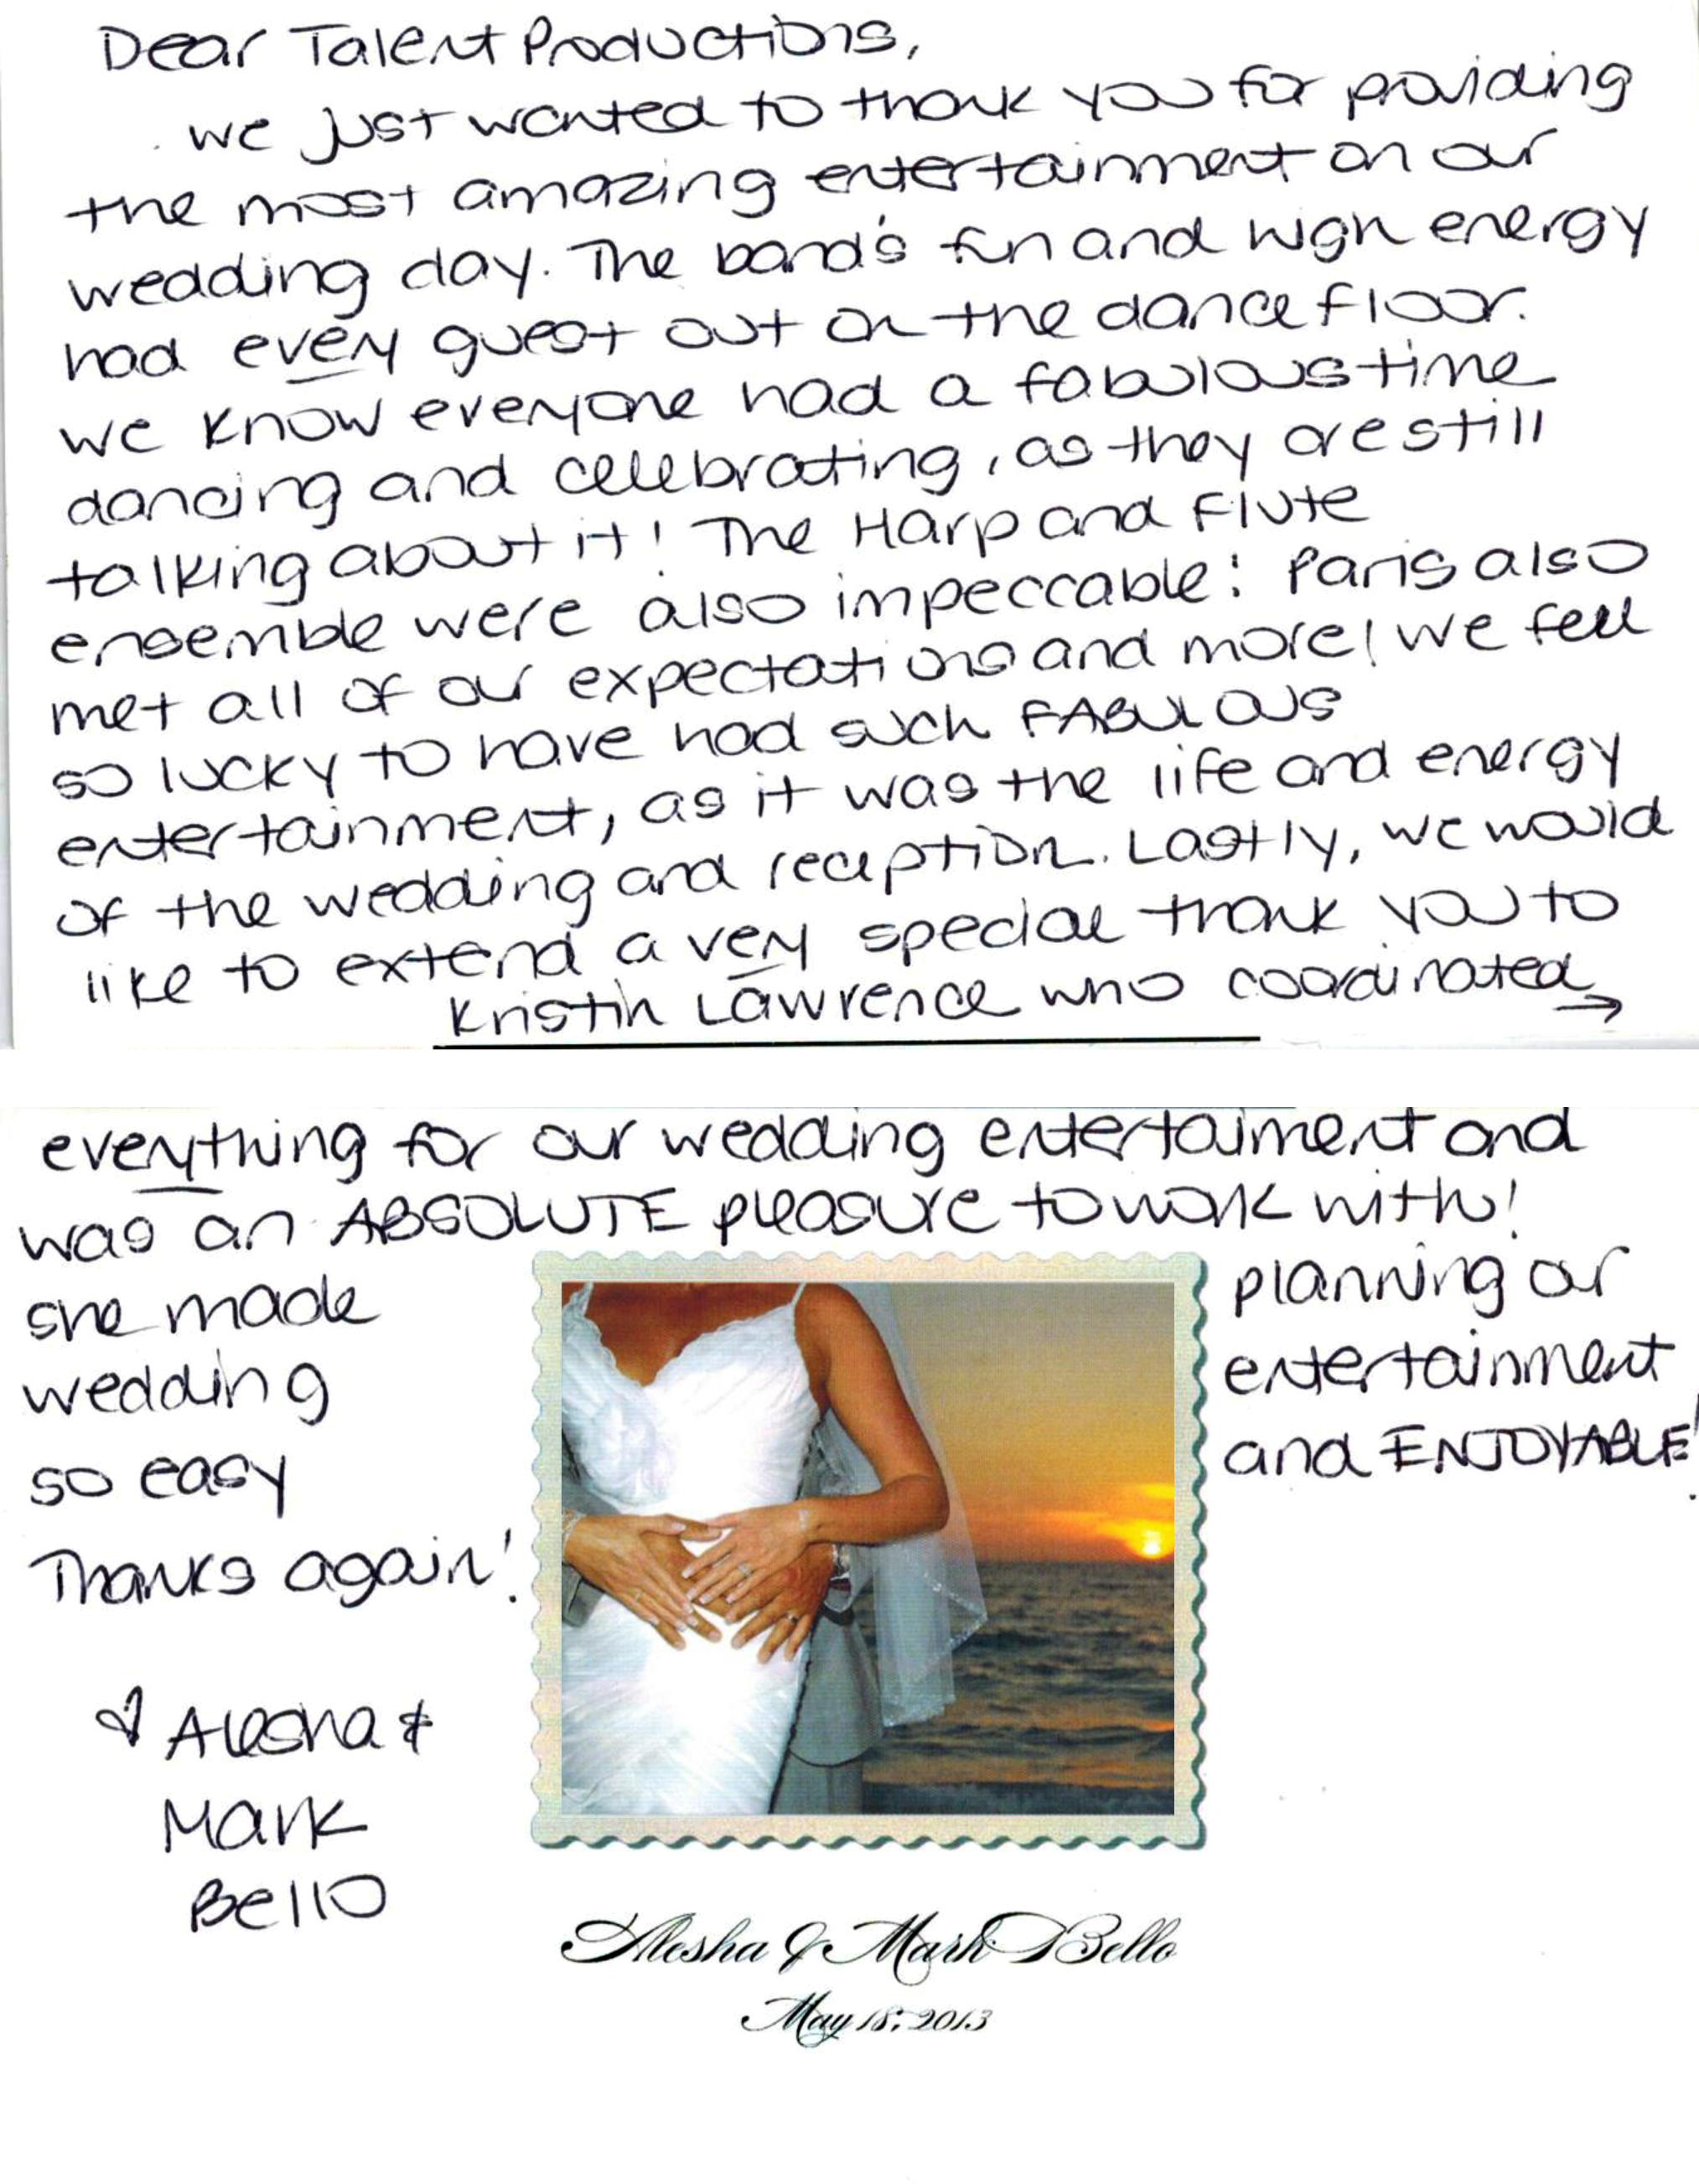 Dear Talent Productions,
we just wanted to thank you for providing
the most amazing entertainment on our
wedding day. The band's fun and high energy
had every guest out on the dance floor.
we know everyone had a fabulous time
dancing and celebrating, as they are still
talking about it! The Harp and Flute
ensemble were also impeccable! Paris also
met all of our expectations and more! we feel
so lucky to have had such FABULOUS
entertainment, as it was the life and energy
of the wedding and reception. Lastly, we would
like to extend a very special thank you to
Kristin Lawrence who coordinated →
everything for our wedding entertaiment and
was an ABSOLUTE pleasure to work with!
she made planning our
wedding entertainment
so easy and ENJOYABLE!
Thanks again!
♡ Alesha &
Mark
Bello
Alesha & Mark Bello
May 18, 2013